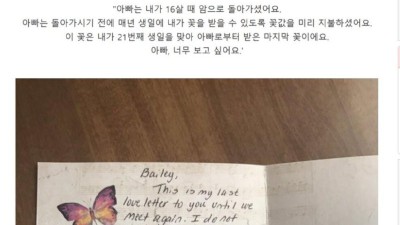 "아빠는 내가 16살 때 암으로 돌아가셨어요.
아빠는 돌아가시기 전에 매년 생일에 내가 꽃을 받을 수 있도록 꽃값을 미리 지불하셨어요.
이 꽃은 내가 21번째 생일을 맞아 아빠로부터 받은 마지막 꽃이에요.
아빠, 너무 보고 싶어요.'
Bailey,
This is my last
love letter to you until we
meet again. I do not